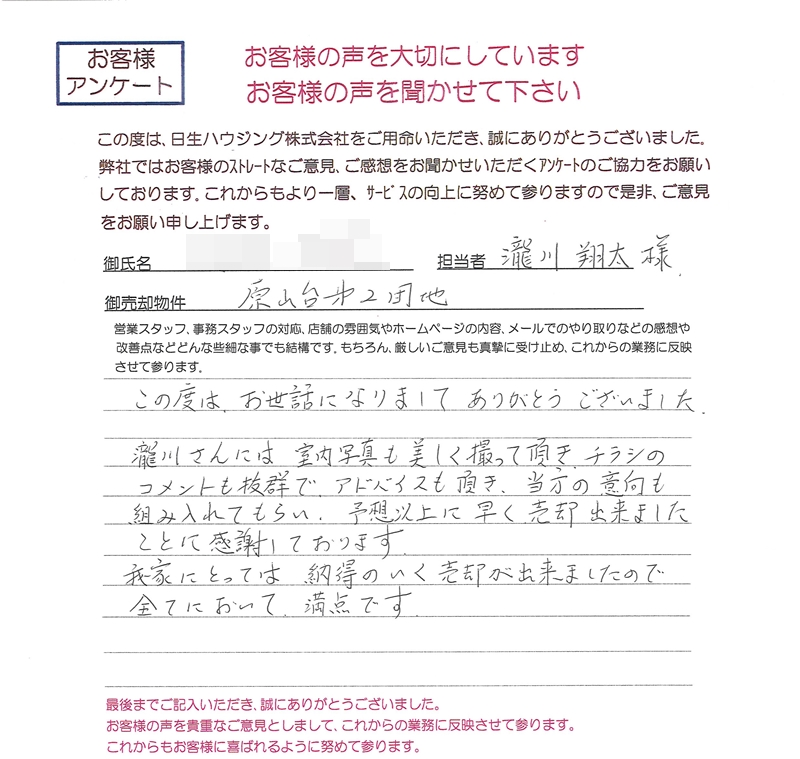 お客様
アンケート
お客様の声を大切にしています
お客様の声を聞かせて下さい
この度は、日生ハウジング株式会社をご用命いただき、誠にありがとうございました。
弊社ではお客様のｽﾄﾚｰﾄなご意見、ご感想をお聞かせいただくｱﾝｹｰﾄのご協力をお願い
しております。これからもより一層、ｻｰﾋﾞｽの向上に努めて参りますので是非、ご意見
をお願い申し上げます。
御氏名
担当者 瀧川 翔太 様
御売却物件 原山台第2団地
営業スタッフ、事務スタッフの対応、店舗の雰囲気やホームページの内容、メールでのやり取りなどの感想や
改善点などどんな些細な事でも結構です。もちろん、厳しいご意見も真摯に受け止め、これからの業務に反映
させて参ります。
この度は、お世話になりまして ありがとう ございました.
瀧川さんには 室内写真も美しく撮って頂き、チラシの
コメントも抜群で、アドバイスも頂き、当方の意向も
組み入れてもらい、予想以上に早く売却出来ました
ことに感謝しております.
我家にとっては 納得のいく売却が出来ましたので
全てにおいて、満点です.
最後までご記入いただき、誠にありがとうございました。
お客様の声を貴重なご意見としまして、これからの業務に反映させて参ります。
これからもお客様に喜ばれるように努めて参ります。